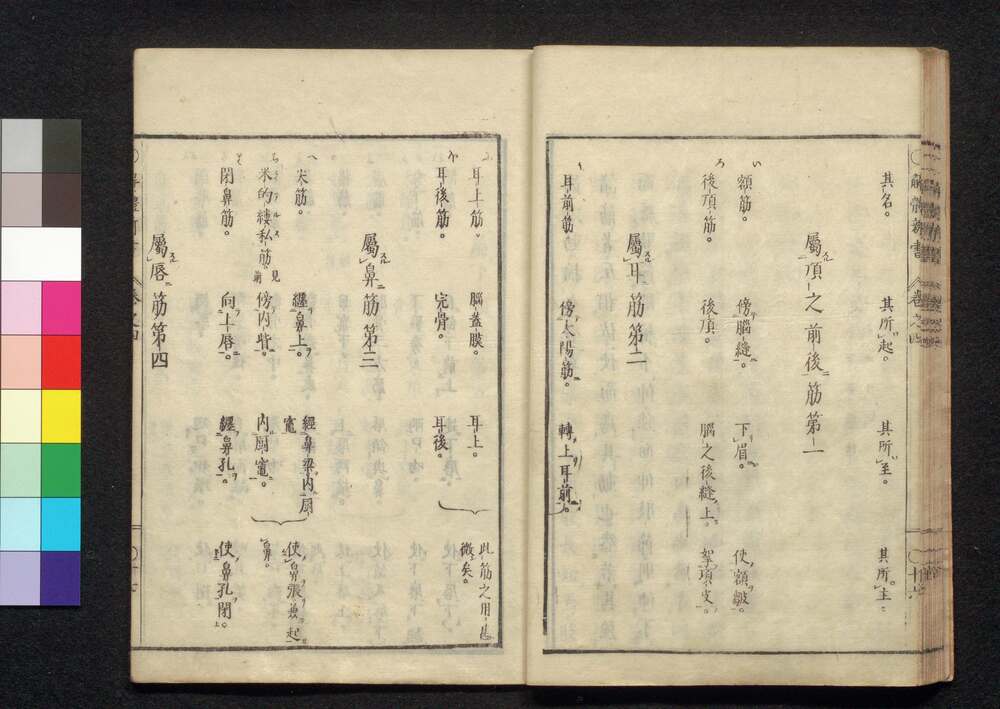 其名。 其所起。 其所至。 其所主。
屬項之前後筋第一
い 額筋。 傍腦縫。 下眉。 使額皺。
ろ 後頂筋。 後頂。 腦之後縫上。 拏項皮。
屬耳筋第二
耳前筋 傍太陽筋。 轉上耳前。
耳上筋。 腦蓋膜。 耳上。 此筋之用
耳後筋。 完骨。 耳後。 微矣。
屬鼻筋第三
へ 尖筋。 纒鼻上。 經鼻梁内扇
竃
ち 米的縷私筋。見前 傍内眥。 内扇竃。 使鼻張兼起
鼻。
閉鼻筋。 向上唇。 纒鼻孔。 使鼻孔閉。
屬唇筋第四
解體新書 卷之四